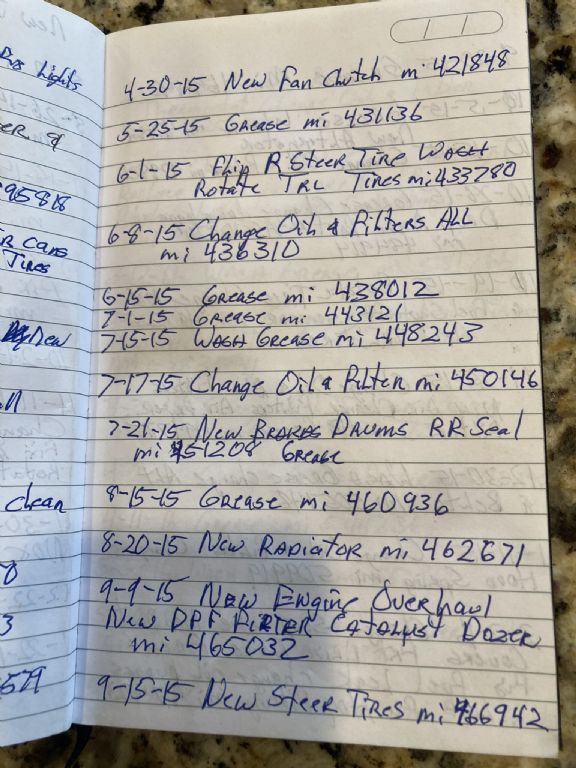 Lights
95818
Tires
New
clean
4-30-15 New Fan Clutch mi 421848
5-25-15 Grease mi 431136
6-1-15 Flip R Steer Tire Wash
Rotate TRL Tires mi 433780
6-8-15 Change Oil & Filters ALL
mi 436310
6-15-15 Grease mi 438012
7-1-15 Grease mi 443121
7-15-15 Wash Grease mi 448243
7-17-15 Change Oil & Filter mi 450146
7-21-15 New Brakes Drums RR Seal
mi 451208 Grease
8-15-15 Grease mi 460936
8-20-15 New Radiator mi 462671
9-9-15 New Engine Overhaul
New DPF Filter Catalyst Dozer
mi 465032
9-15-15 New Steer Tires mi 466942